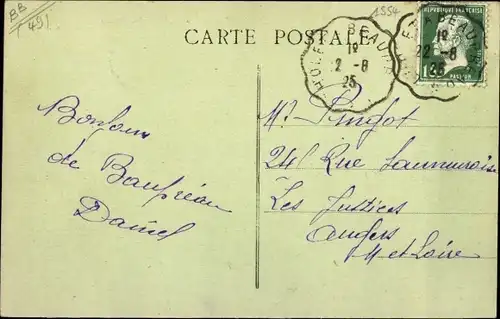 BB
491
1554
CARTE POSTALE
BEAUPR
1°
22-8
25
1°
22-8
25
REPUBLIQUE FRANCAISE
PASTEUR
Bonjour
de Baupréau
Daniel
Mr Pingot
24 Rue Saumuroise
Les Justices
Angers
M et Loire